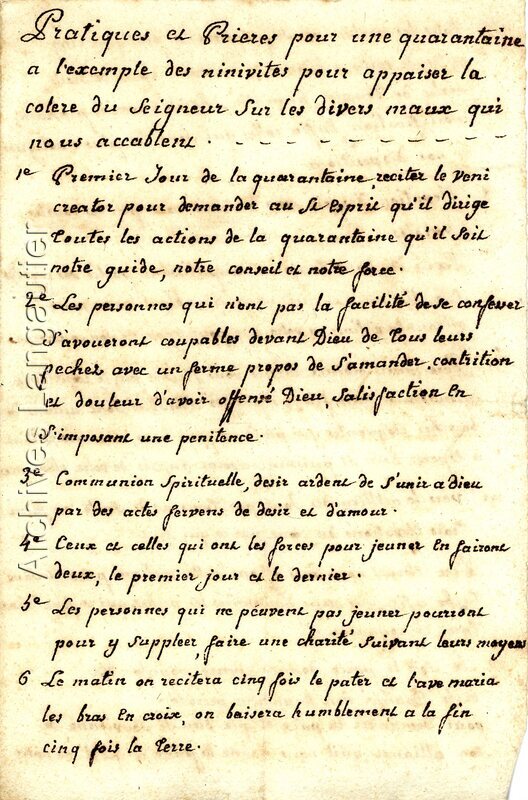 Pratiques et Prieres pour une quarantaine
a l'exemple des ninivites pour appaiser la
colere du Seigneur sur les divers maux qui
nous accablent.
1e Premier Jour de la quarantaine, reciter le veni
creator pour demander au St Esprit qu'il dirige
toutes les actions de la quarantaine qu'il soit
notre guide, notre conseil et notre force.
2e Les personnes qui n'ont pas la facilité de se confesser
s'avoueront coupables devant Dieu de tous leurs
pechez avec un ferme propos de s'amander, contrition
et douleur d'avoir offensé Dieu, satisfaction en
s'imposant une penitence.
3e Communion spirituelle, desir ardent de s'unir a dieu
par des actes fervens de desir et d'amour.
4e Ceux et celles qui ont les forces pour jeuner en fairont
deux, le premier jour et le dernier.
5e Les personnes qui ne péuvent pas jeuner pourront
pour y suppleer, faire une charité suivant leurs moyens
6 Le matin on recitera cinq fois le pater et l'ave maria
les bras en croix, on baisera humblement a la fin
cinq fois la terre.
Archives Langautier